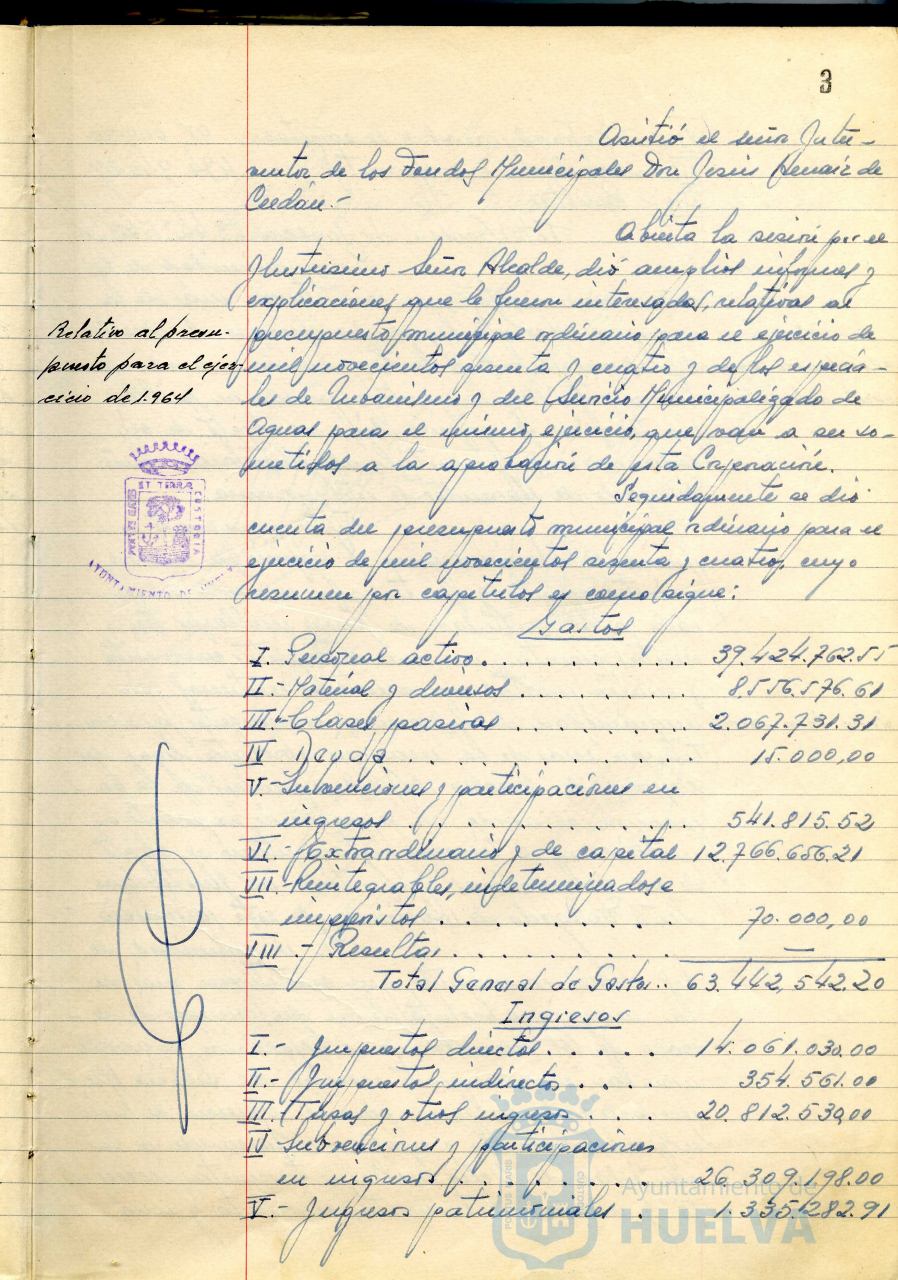 3
Asistió el señor Inter-
ventor de los Fondos Municipales Don Jesús de
Cerdán.-
Abierta la sesión por el
Ilustrísimo Señor Alcalde, dió amplios informes y
explicaciones que le fueron interesadas, relativas al
Relativo al presu-
puesto para el ejer-
cicio de 1.964
presupuesto municipal ordinario para el ejercicio de
mil novecientos sesenta y cuatro y de los especia-
les de Urbanismo y del Servicio Municipalizado de
Aguas para el mismo ejercicio, que van a ser so-
metidos a la aprobación de esta Corporación.
Seguidamente se dió
cuenta del presupuesto municipal ordinario para el
ejercicio de mil novecientos sesenta y cuatro, cuyo
resumen por capítulos es como sigue:
PORTUS MARIS ET TERRAE CUSTODIA
AYUNTAMIENTO DE HUELVA
Gastos
I. Personal activo. . . . . . . . . . . 39.424.762.55
II.- Material y diversos . . . . . . . . . 8.556.576.61
III.- Clases pasivas . . . . . . . . . 2.067.731.31
IV Deuda . . . . . . . . . . . . . 15.000,00
V.- Subvenciones y participaciones en
ingresos . . . . . . . . . . . . 541.815.52
VI.- Extraordinario y de capital 12.766.656.21
VII.- Reintegrables, indeterminados e
imprevistos . . . . . . . . . . 70.000,00
VIII.- Resultas . . . . . . . . . . . —
Total General de Gastos.. 63.442,542.20
Ingresos
I.- Impuestos directos. . . . . . 14.061.030.00
II.- Impuestos indirectos . . . . 354.561.00
III. Tasas y otros ingresos . . . 20.812.530,00
IV Subvenciones y participaciones
en ingresos . . . . . . . . . 26.309.198.00
V.- Ingresos patrimoniales . 1.335.282.91
Ayuntamiento de
HUELVA